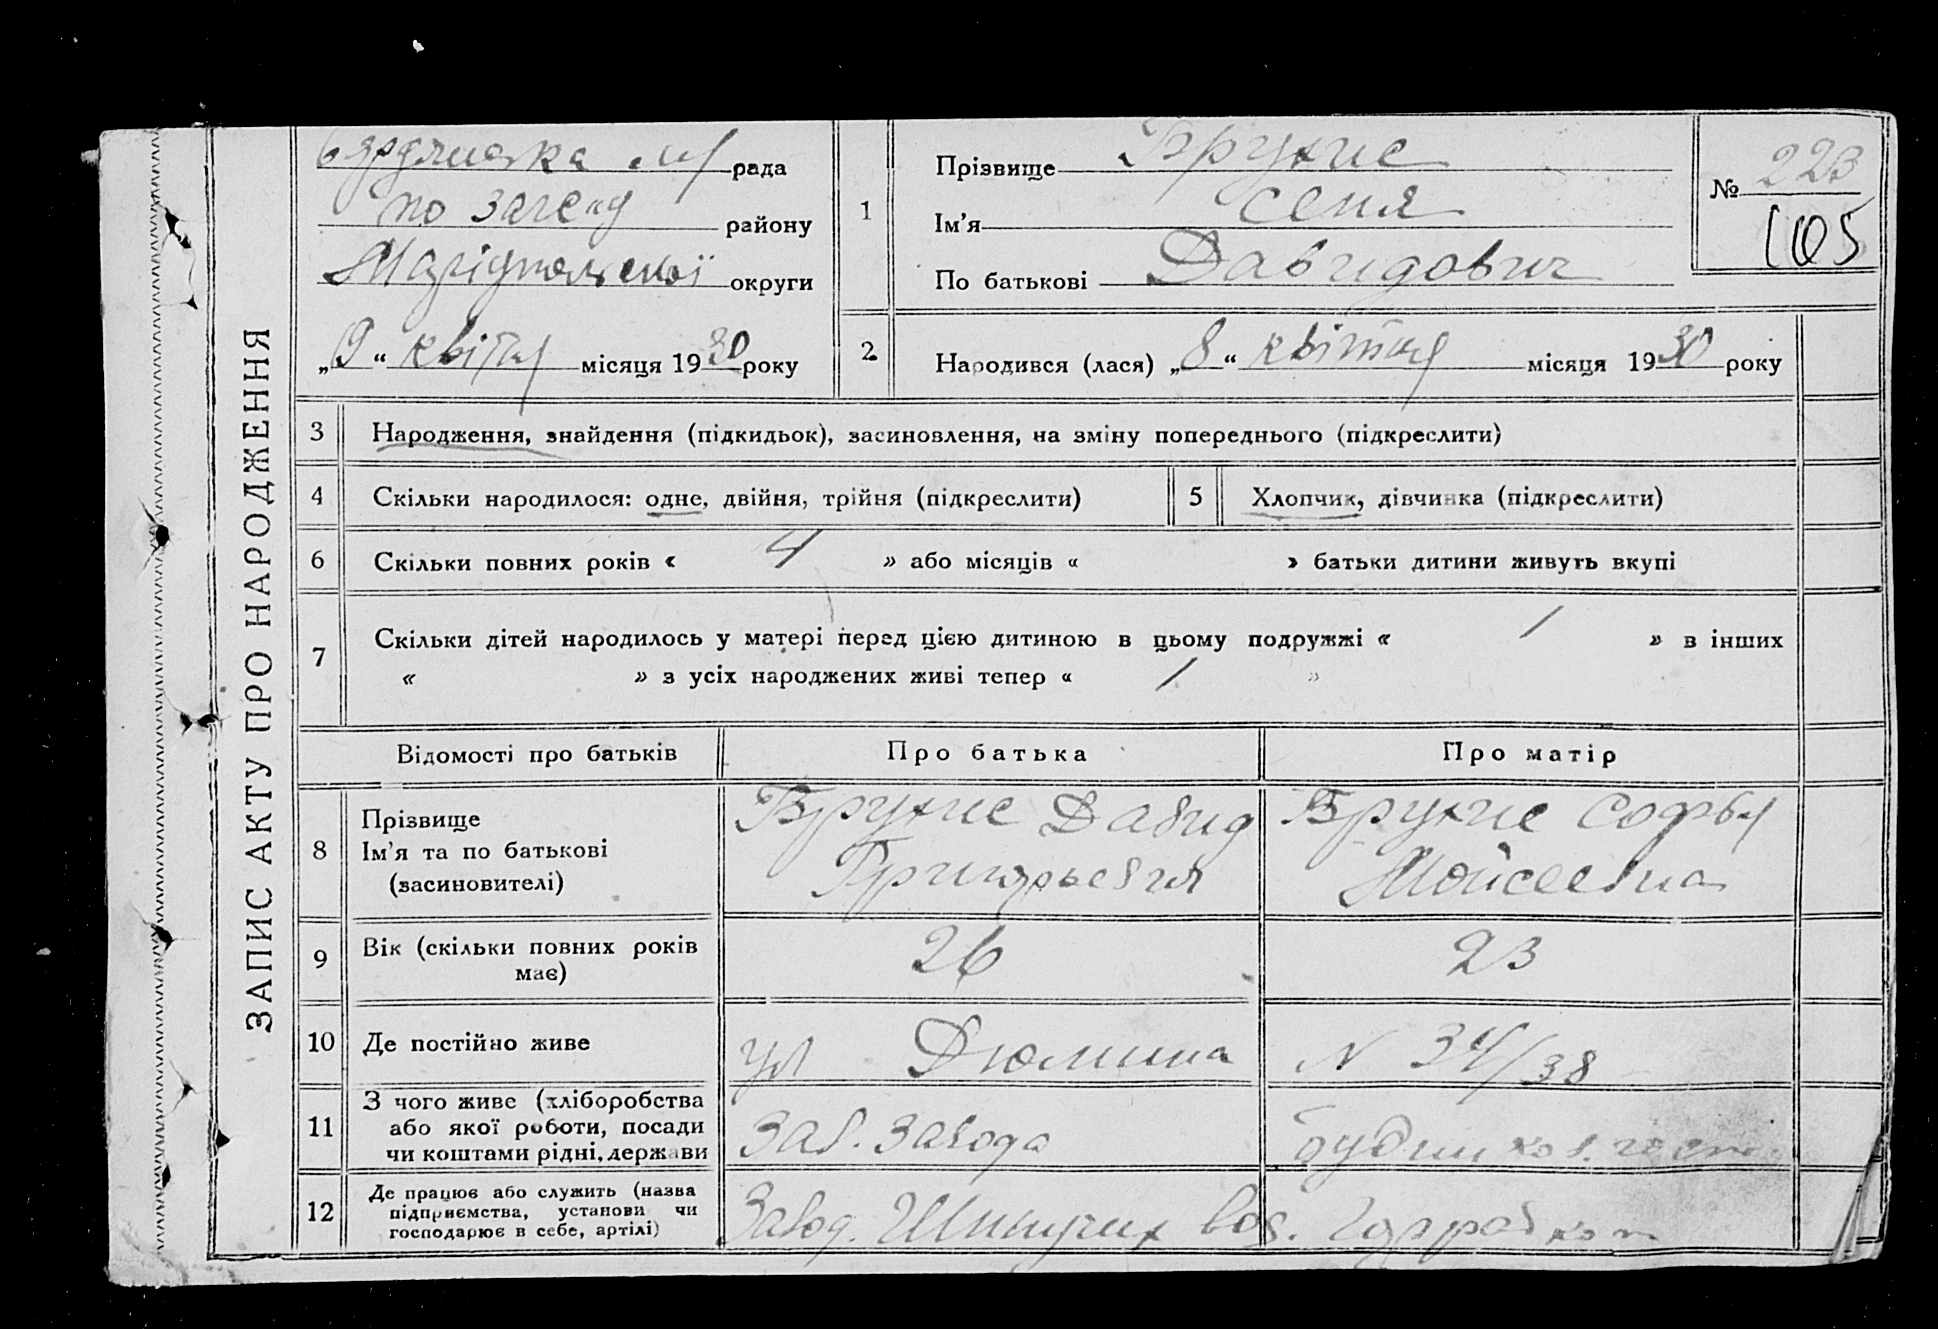 Бердянська м/ рада
по загсу району
Маріупольської округи
„9“ квітня місяця 1930 року
1
Прізвище
Ім’я Сеня
По батькові Давидович
№ 223
105
2
Народився (лася) „8“ квітня місяця 1930 року
ЗАПИС АКТУ ПРО НАРОДЖЕННЯ
3 Народження, знайдення (підкидьок), засиновлення, на зміну попереднього (підкреслити)
4 Скільки народилося: одне, двійня, трійня (підкреслити)
5 Хлопчик, дівчинка (підкреслити)
6 Скільки повних років « 4 » або місяців « » батьки дитини живуть вкупі
7 Скільки дітей народилось у матері перед цією дитиною в цьому подружжі « 1 » в інших
« » з усіх народжених живі тепер « 1 »
Відомості про батьків Про батька Про матір
8
Прізвище
Ім’я та по батькові
(засиновителі)
Давид
Софья
Мойсеевна
9
Вік (скільки повних років
має)
26
23
10 Де постійно живе
ул Дюмина
N 34/38
11
З чого живе (хліборобства
або якої роботи, посади
чи коштами рідні, держави
Зав. Завода
12
Де працює або служить (назва
підприємства, установи чи
господарює в себе, артілі)
Завод. Шипучих вод.